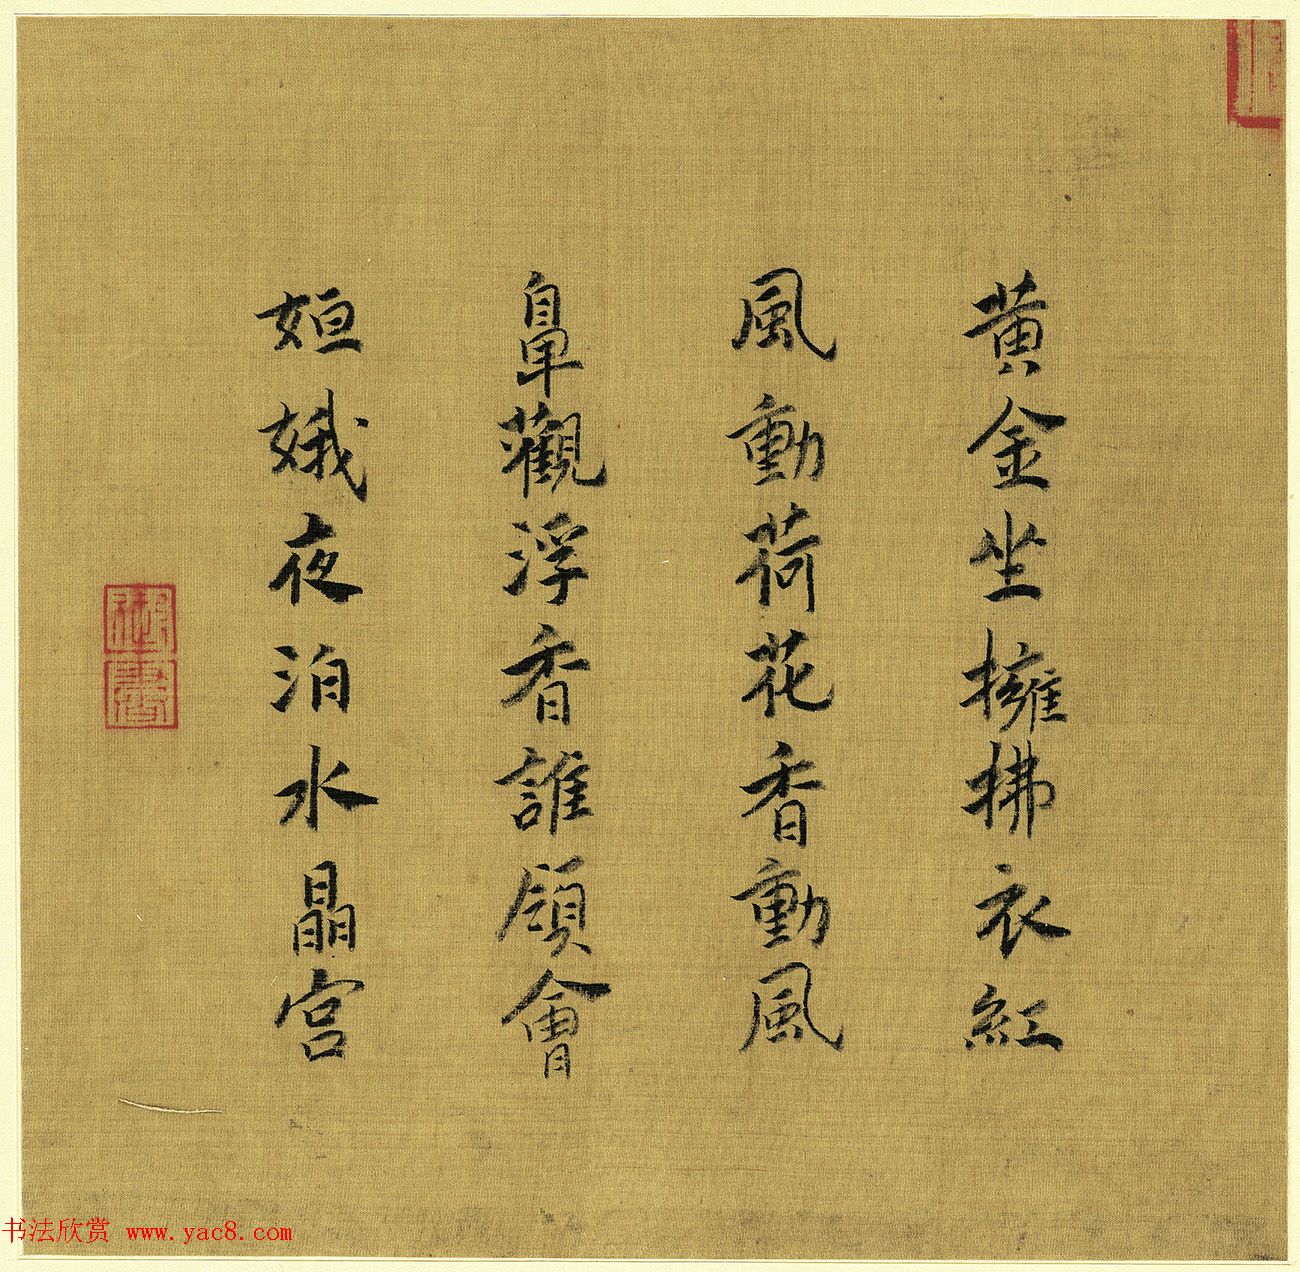 黃金坐擁拂衣紅
風動荷花香動風
鼻觀浮香誰領會
姮娥夜泊水晶宮
御書
书法欣赏 www.yac8.com